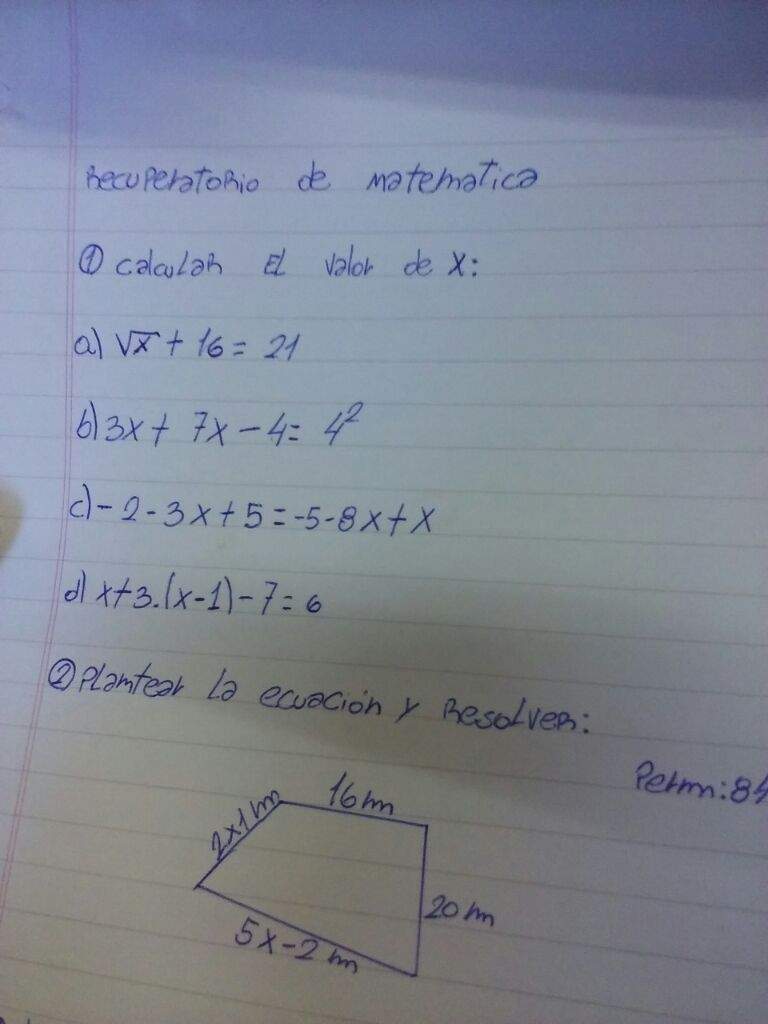 Recuperatorio de matematica
① calcular El valor de x:
a) √x + 16 = 21
b) 3x + 7x - 4 = 4²
c) - 2 - 3x + 5 = -5 - 8x + x
d) x+3.(x-1) - 7 = 6
② Plantear la ecuación y Resolver:
16 m
2x1 m
20 m
5x-2 m